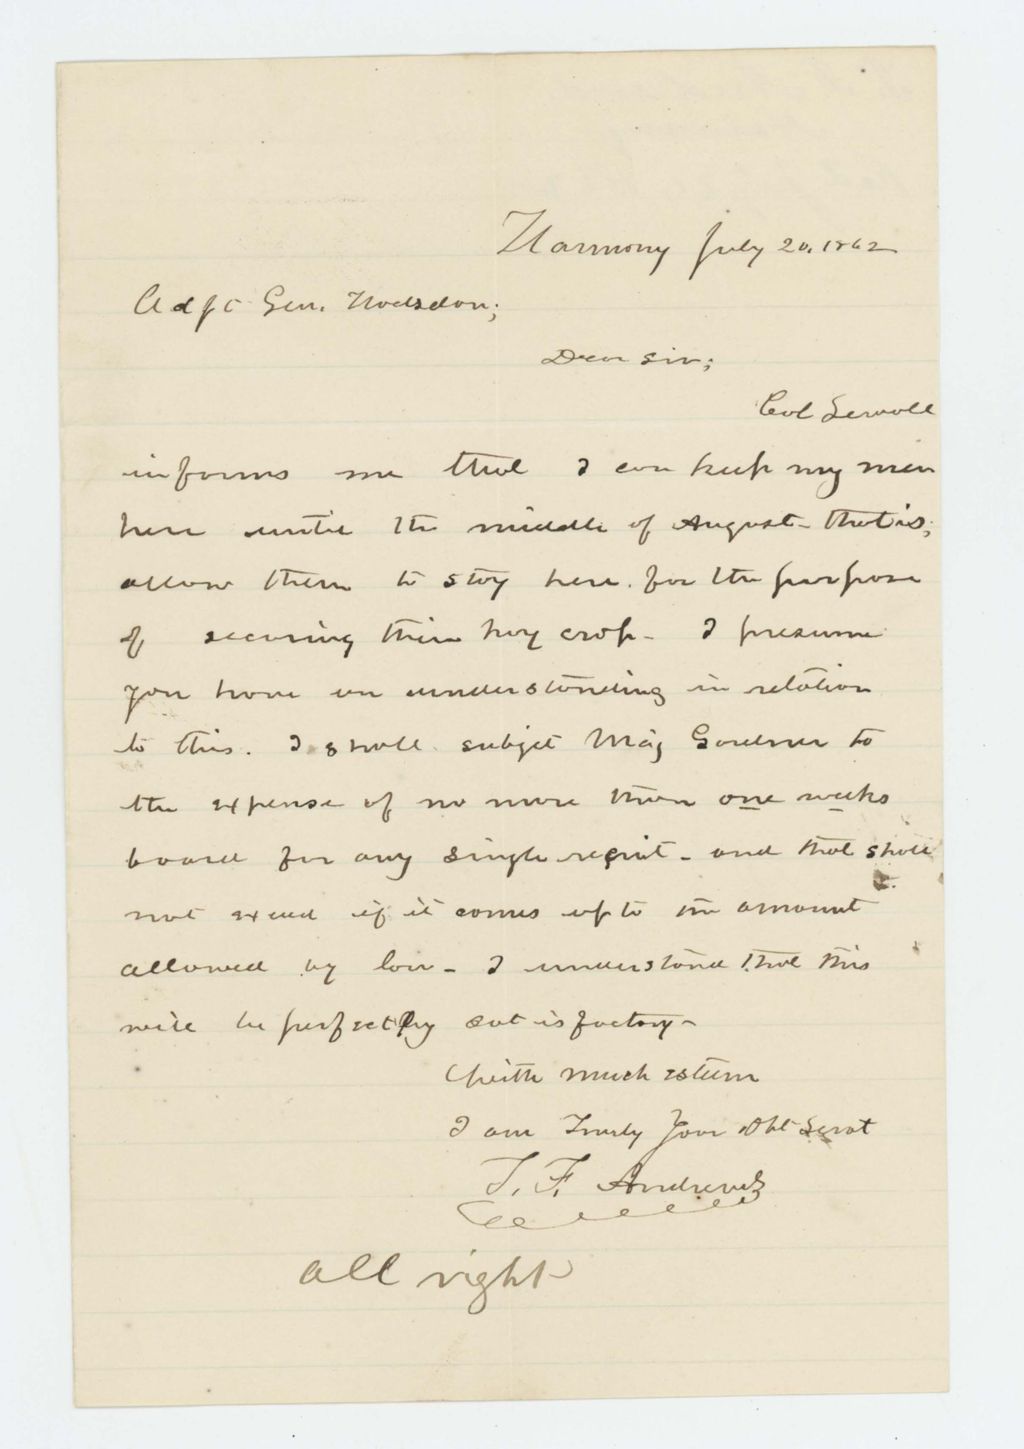 Harmony July 20, 1862
Adjt Gen. Hodsdon;
Dear Sir;
Col Sewall
informs me that I can keep my men
here until the middle of August - that is;
allow them to stay here for the purpose
of securing their hay crop - I presume
you have an understanding in relation
to this. I shall subject Maj Gardiner to
the expense of no more than one weeks
board for any single recruit - and that shall
not exceed if it comes up to the amount
allowed by law - I understand that this
will be perfectly satisfactory -
With much esteem
I am Truly Your Obt Servt
T. F. Andrews
all right